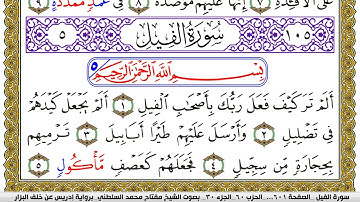 عَلَى الْأَفْـِٔدَةِ ٧ إِنَّهَا عَلَيْهِم مُّوصَدَةٌ ٨ فِي عَمَدٍ مُّمَدَّدَةٍ ٩
٥ سُورَةُ الْفِيلِ ١٠٥
بِسْمِ اللَّهِ الرَّحْمَٰنِ الرَّحِيمِ ٥
أَلَمْ تَرَ كَيْفَ فَعَلَ رَبُّكَ بِأَصْحَٰبِ الْفِيلِ ١ أَلَمْ يَجْعَلْ كَيْدَهُمْ
فِي تَضْلِيلٍ ٢ وَأَرْسَلَ عَلَيْهِمْ طَيْرًا أَبَابِيلَ ٣ تَرْمِيهِم
بِحِجَارَةٍ مِّن سِجِّيلٍ ٤ فَجَعَلَهُمْ كَعَصْفٍ مَّأْكُولٍ ٥
سورة الفيل الصفحة ٦٠١ ... الحزب ٦٠ الجزء ٣٠ بصوت الشيخ مفتاح محمد السلطني برواية إدريس عن خلف البزار